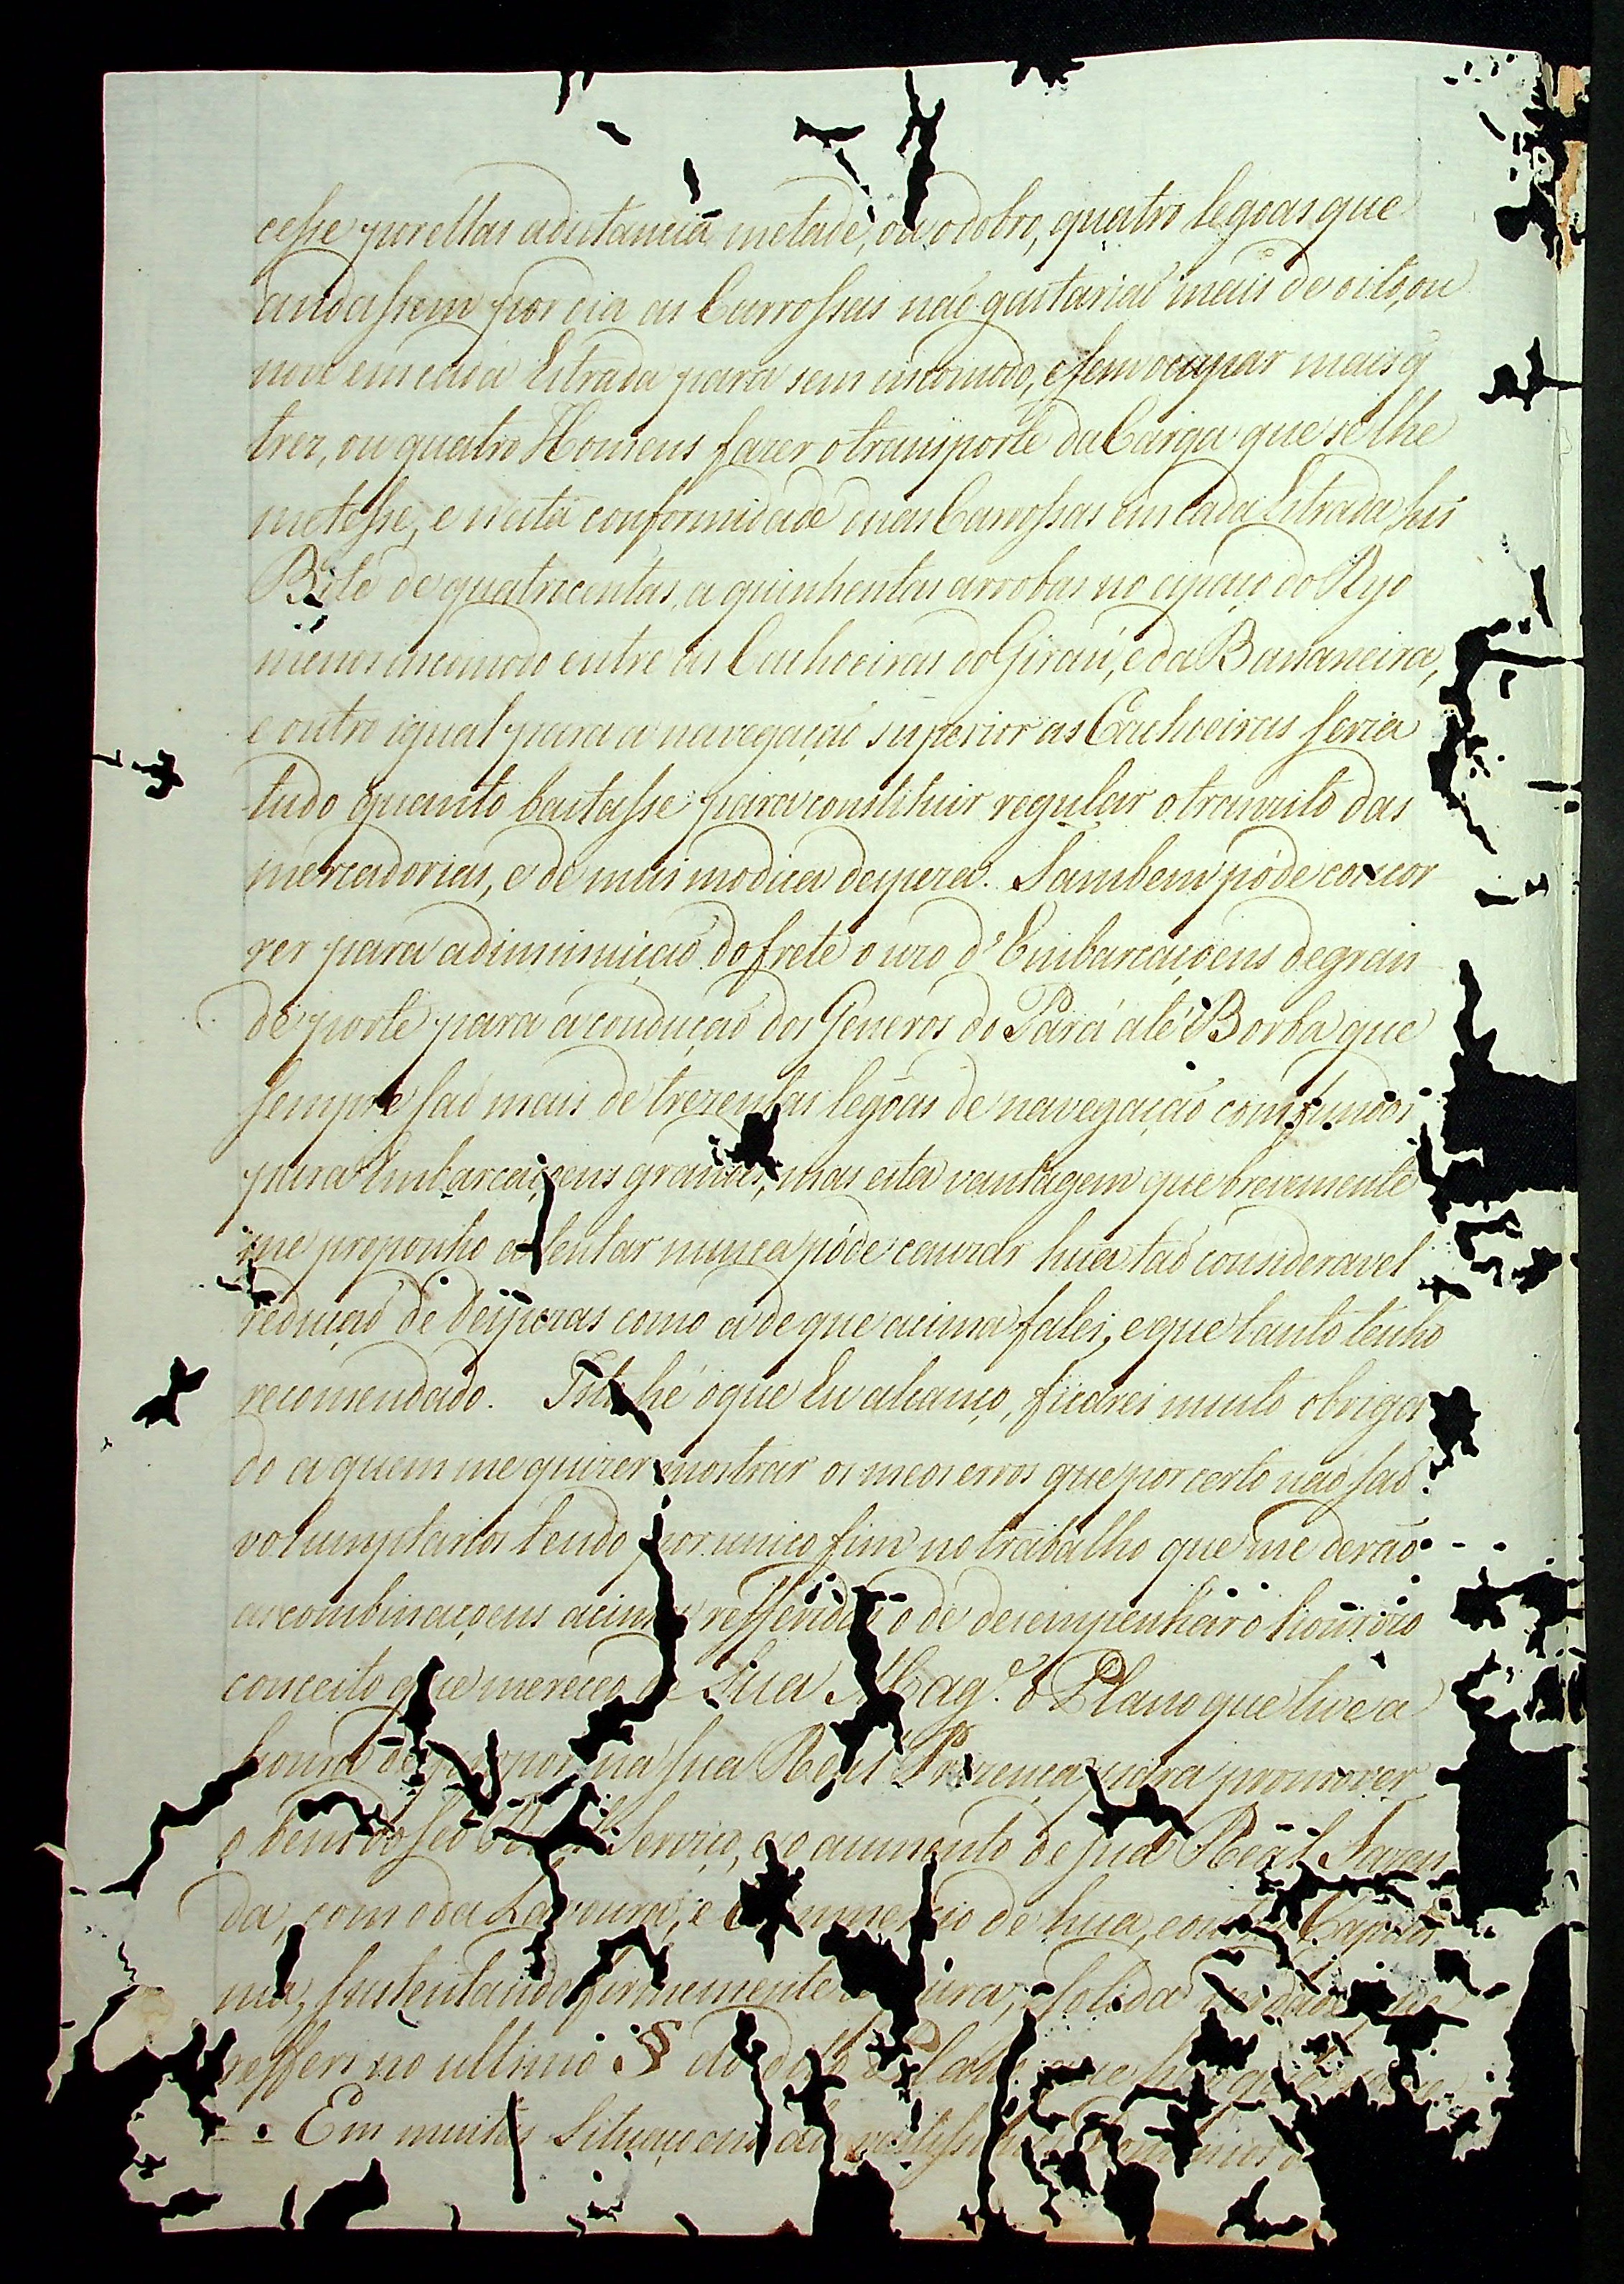 cesse por ellas adistancia metade, ou o dobro, quatro legoas que
andassem por dia as Carrossas naõ gastariaõ mais de oito, ou
nove em cada Estrada para sem incomodo, e sem ocupar mais q̃
trez, ou quatro Homens fazer o transporte da Carga que se lhe
metesse, e nesta conformidade duas Carrossas em cada Estrada, hũ
Bote de quatrocentas, a quinhentas arrobas no espaço do Ryo
menos incomodo entre as Cachoeiras do Giraú, e da Bananeira,
e outro igual para a navegaçaõ superior as Cachoeiras seria
tudo quanto bastasse para constituir regular o tranzito das
mercadorias, e de mais modica despeza. Tambem póde concor
rer para adiminuiçaõ do frete o uzo d'Embarcaçoens de gran
de porte para a conduçaõ dos Generos do Pará até Borba que
sempre saõ mais de trezentas legoas de navegaçaõ com fundos
para Embarcaçoens grandes, mas esta vantagem que brevemente
me proponho a tentar nunca póde cauzar hũa taõ consideravel
reduçaõ de despezas como a de que acima falei, e que tanto tenho
recomendado. Isto hé o que Eu alcanço, ficarei muito obriga
do a quem me quizer mostrar os meos erros que por certo naõ saõ
volumptarios tendo por unico fim no trabalho que me deraõ
as combinaçoens acima refferidas o de dezempenhar o honrozo
conceito que mereceo de Sua Mag.e o Plano que tive a
honra de propor na sua Real Prezença para promover
o bem do seo Real Serviço, e o aumento de sua Real Fazen
da, com o da Lavoura, e Commercio de hua, e outra Capita
nia, sustentando firmemente a pura, e solida verdade que
refferi no ultimo § do dito Plano que hé o que
Em muitas Situaçoens dos vastissimos Dominios